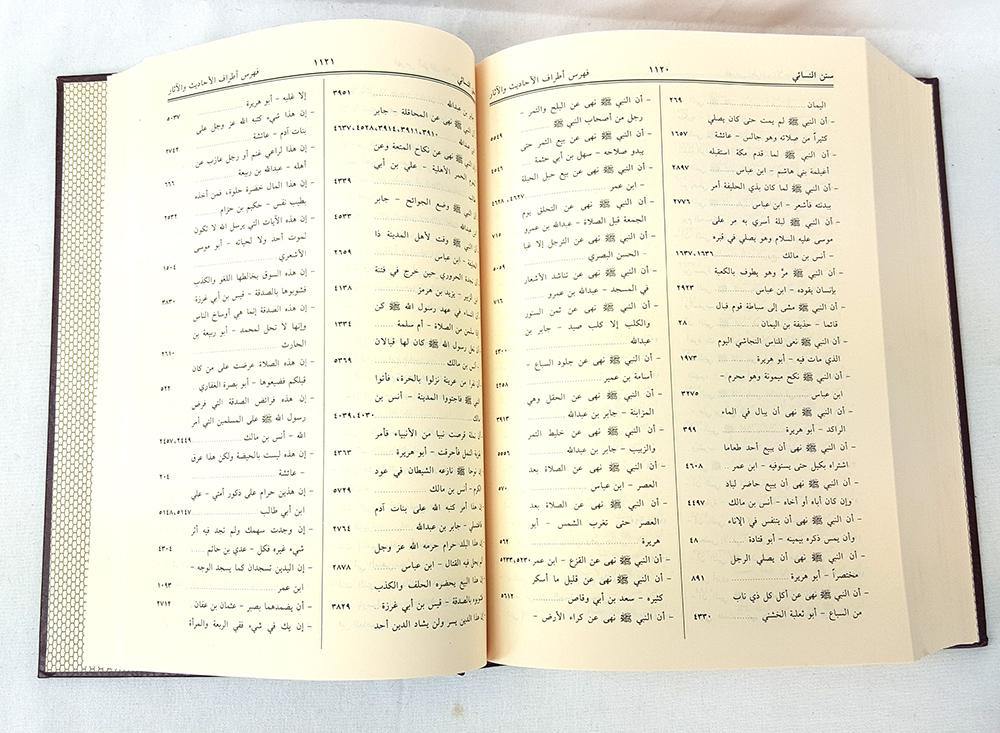 سنن النسائي
١١٢٠
فهرس أطراف الأحاديث والآثار
اليمان ٢٦٩
- أن النبي ﷺ لم يمت حتى كان يصلي
كثيراً من صلاته وهو جالس - عائشة ١٦٥٧
- أن النبي ﷺ لما قدم مكة استقبله
أغيلمة بني هاشم - ابن عباس ٢٨٩٧
- أن النبي ﷺ لما كان بذي الحليفة أمر
ببدنته فأشعر - ابن عباس ٢٧٧٦
- أن النبي ﷺ ليلة أسري به مر على
موسى عليه السلام وهو يصلي في قبره
- أنس بن مالك ١٦٣٧،١٦٣٦
- أن النبي ﷺ مرَّ وهو يطوف بالكعبة
بإنسان يقوده - ابن عباس ٢٩٢٣
- أن النبي ﷺ مشى إلى سباطة قوم فبال
قائما - حذيفة بن اليمان ٢٨
- أن النبي ﷺ نعى للناس النجاشي اليوم
الذي مات فيه - أبو هريرة ١٩٧٣
- أن النبي ﷺ نكح ميمونة وهو محرم -
ابن عباس ٣٢٧٥
- أن النبي ﷺ نهى أن يبال في الماء
الراكد - أبو هريرة ٣٩٩
- أن النبي ﷺ نهى أن يبيع أحد طعاما
اشتراه بكيل حتى يستوفيه - ابن عمر ٤٦٠٨
- أن النبي ﷺ نهى أن يبيع حاضر لباد
وإن كان أباه أو أخاه - أنس بن مالك ٤٤٩٧
- أن النبي ﷺ نهى أن يتنفس في الإناء
وأن يمس ذكره بيمينه - أبو قتادة ٤٨
- أن النبي ﷺ نهى أن يصلي الرجل
مختصراً - أبو هريرة ٨٩١
- أن النبي ﷺ نهى عن أكل كل ذي ناب
من السباع - أبو ثعلبة الخشني ٤٣٣٠
- أن النبي ﷺ نهى عن البلح والتمر -
رجل من أصحاب النبي ﷺ ٥٥٤٩
- أن النبي ﷺ نهى عن بيع الثمر حتى
يبدو صلاحه - سهل بن أبي حثمة ٤٥٤٦
- أن النبي ﷺ نهى عن بيع حبل الحبلة
- ابن عمر ٤٦٢٨،٤٦٢٧
- أن النبي ﷺ نهى عن التحلق يوم
الجمعة قبل الصلاة - عبدالله بن عمرو ٧١٥
- أن النبي ﷺ نهى عن الترجل إلا غبا
- الحسن البصري ٥٠٥٩
- أن النبي ﷺ نهى عن تناشد الأشعار
في المسجد - عبدالله بن عمرو ٧١٦
- أن النبي ﷺ نهى عن ثمن السنور
والكلب إلا كلب صيد - جابر بن
عبدالله ٤٣٠٠
- أن النبي ﷺ نهى عن جلود السباع -
أسامة بن عمير ٤٢٥٨
- أن النبي ﷺ نهى عن الحقل وهي
المزابنة - جابر بن عبدالله ٣٩١٣
- أن النبي ﷺ نهى عن خليط التمر
والزبيب - جابر بن عبدالله ٥٥٥٦
- أن النبي ﷺ نهى عن الصلاة بعد
العصر - ابن عباس ٥٧٠
- أن النبي ﷺ نهى عن الصلاة بعد
العصر حتى تغرب الشمس - أبو
هريرة ٥٦٢
- أن النبي ﷺ نهى عن القزع - ابن عمر ٥٢٣٣،٥٢٣٠
- أن النبي ﷺ نهى عن قليل ما أسكر
كثيره - سعد بن أبي وقاص ٥٦١٢
- أن النبي ﷺ نهى عن كراء الأرض -
النسائي
١١٢١
فهرس أطراف الأحاديث والآثار
بن عبدالله ٣٩٥١
النبي ﷺ نهى عن المحاقلة - جابر
عبدالله ٤٦٣٧،٤٥٢٨،٣٩١٤،٣٩١١،٣٩١٠
النبي ﷺ نهى عن نكاح المتعة وعن
الحمر الأهلية - علي بن أبي
٤٣٣٩
النبي ﷺ وضع الجوائح - جابر
عبدالله ٤٥٣٣
النبي ﷺ وقت لأهل المدينة ذا
- ابن عباس ٢٦٥٩
نجدة الحروري حين خرج في فتنة
الزبير - يزيد بن هرمز ٤١٣٨
النساء في عهد رسول الله ﷺ كن
سلمن من الصلاة - أم سلمة ١٣٣٤
نعل رسول الله ﷺ كان لها قبالان
بن مالك ٥٣٦٩
نفرا من عرينة نزلوا بالحرة، فأتوا
ﷺ فاجتووا المدينة - أنس بن
٤٠٣٩،٤٠٣٠
نملة قرصت نبيا من الأنبياء فأمر
النمل فأحرقت - أبو هريرة ٤٣٦٣
نوحا ﷺ نازعه الشيطان في عود
الكرم - أنس بن مالك ٥٧٢٩
هذا أمر كتبه الله على بنات آدم
- جابر بن عبدالله ٢٧٦٤
هذا البلد حرام حرمه الله عز وجل
لم يحل فيه القتال - ابن عباس ٢٨٧٨
هذا البيع يحضره الحلف والكذب
بالصدقة - قيس بن أبي غرزة ٣٨٢٩
هذا الدين يسر ولن يشاد الدين أحد
إلا غلبه - أبو هريرة ٥٠٣٧
- إن هذا شيء كتبه الله عز وجل على
بنات آدم - عائشة ٢٧٤٢
- إن هذا لراعي غنم أو رجل عازب عن
أهله - عبدالله بن ربيعة ٦٦٦
- إن هذا المال خضرة حلوة، فمن أخذه
بطيب نفس - حكيم بن حزام ٢٥٣٢
- إن هذه الآيات التي يرسل الله لا تكون
لموت أحد ولا لحياته - أبو موسى
الأشعري ١٥٠٤
- إن هذه السوق يخالطها اللغو والكذب
فشوبوها بالصدقة - قيس بن أبي غرزة ٣٨٣٠
- إن هذه الصدقة إنما هي أوساخ الناس
وإنها لا تحل لمحمد - أبو ربيعة بن
الحارث ٢٦١٠
- إن هذه الصلاة عرضت على من كان
قبلكم فضيعوها - أبو بصرة الغفاري ٥٢٢
- إن هذه فرائض الصدقة التي فرض
رسول الله ﷺ على المسلمين التي أمر
الله - أنس بن مالك ٢٤٥٧،٢٤٤٩
- إن هذه ليست بالحيضة ولكن هذا عرق
- عائشة ٢٠٤
- إن هذين حرام على ذكور أمتي - علي
بن أبي طالب ٥١٤٨،٥١٤٧
- إن وجدت سهمك ولم تجد فيه أثر
شيء غيره فكل - عدي بن حاتم ٤٣٠٤
- إن اليدين تسجدان كما يسجد الوجه -
ابن عمر ١٠٩٣
- أن يضمدهما بصبر - عثمان بن عفان ٢٧١٢
- إن يك في شيء ففي الربعة والمرأة